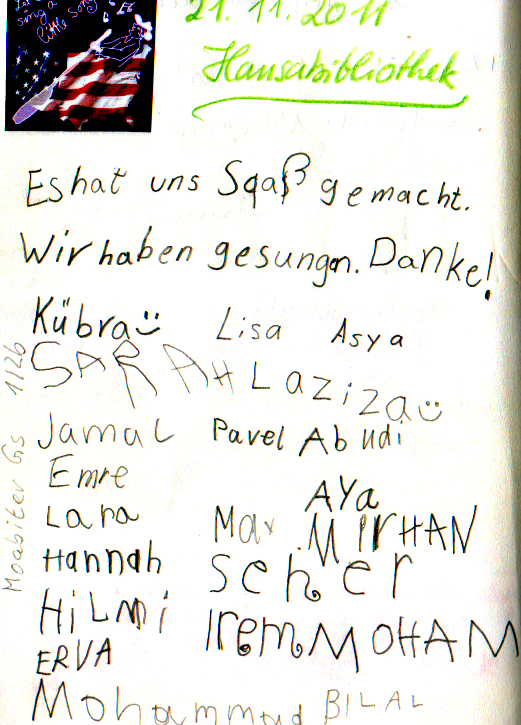 sing a
little song
21.11.2011
Hansabibliothek
Es hat uns Sqaß gemacht.
Wir haben gesungen. Danke!
Kübra Lisa Asya
SARAH Laziza
Jamal Pavel Abudi
Emre
AYa
Lara Max MIRHAN
Hannah scher
HiLmi Irem MOHAM
ERVA
Mohammad BILAL
Moabiter GS 1/2b